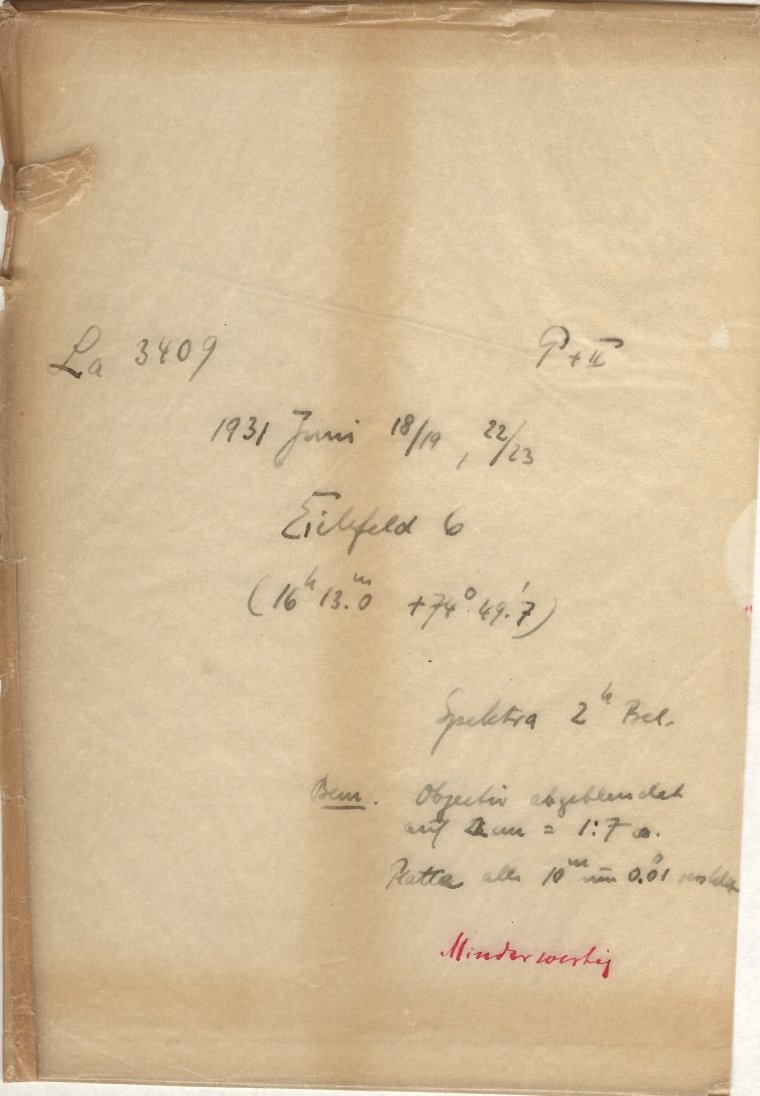 La 3409 P + II
1931 Juni 18/19, 22/23
Eichfeld 6
(16ʰ 13.ᵐ0 +74° 49.'7)
Spektra 2ʰ Bel.
Bem. Objectiv abgeblendet
auf cm = 1:7
Platte alle 10ᵐ um 0.01
Minderwertig